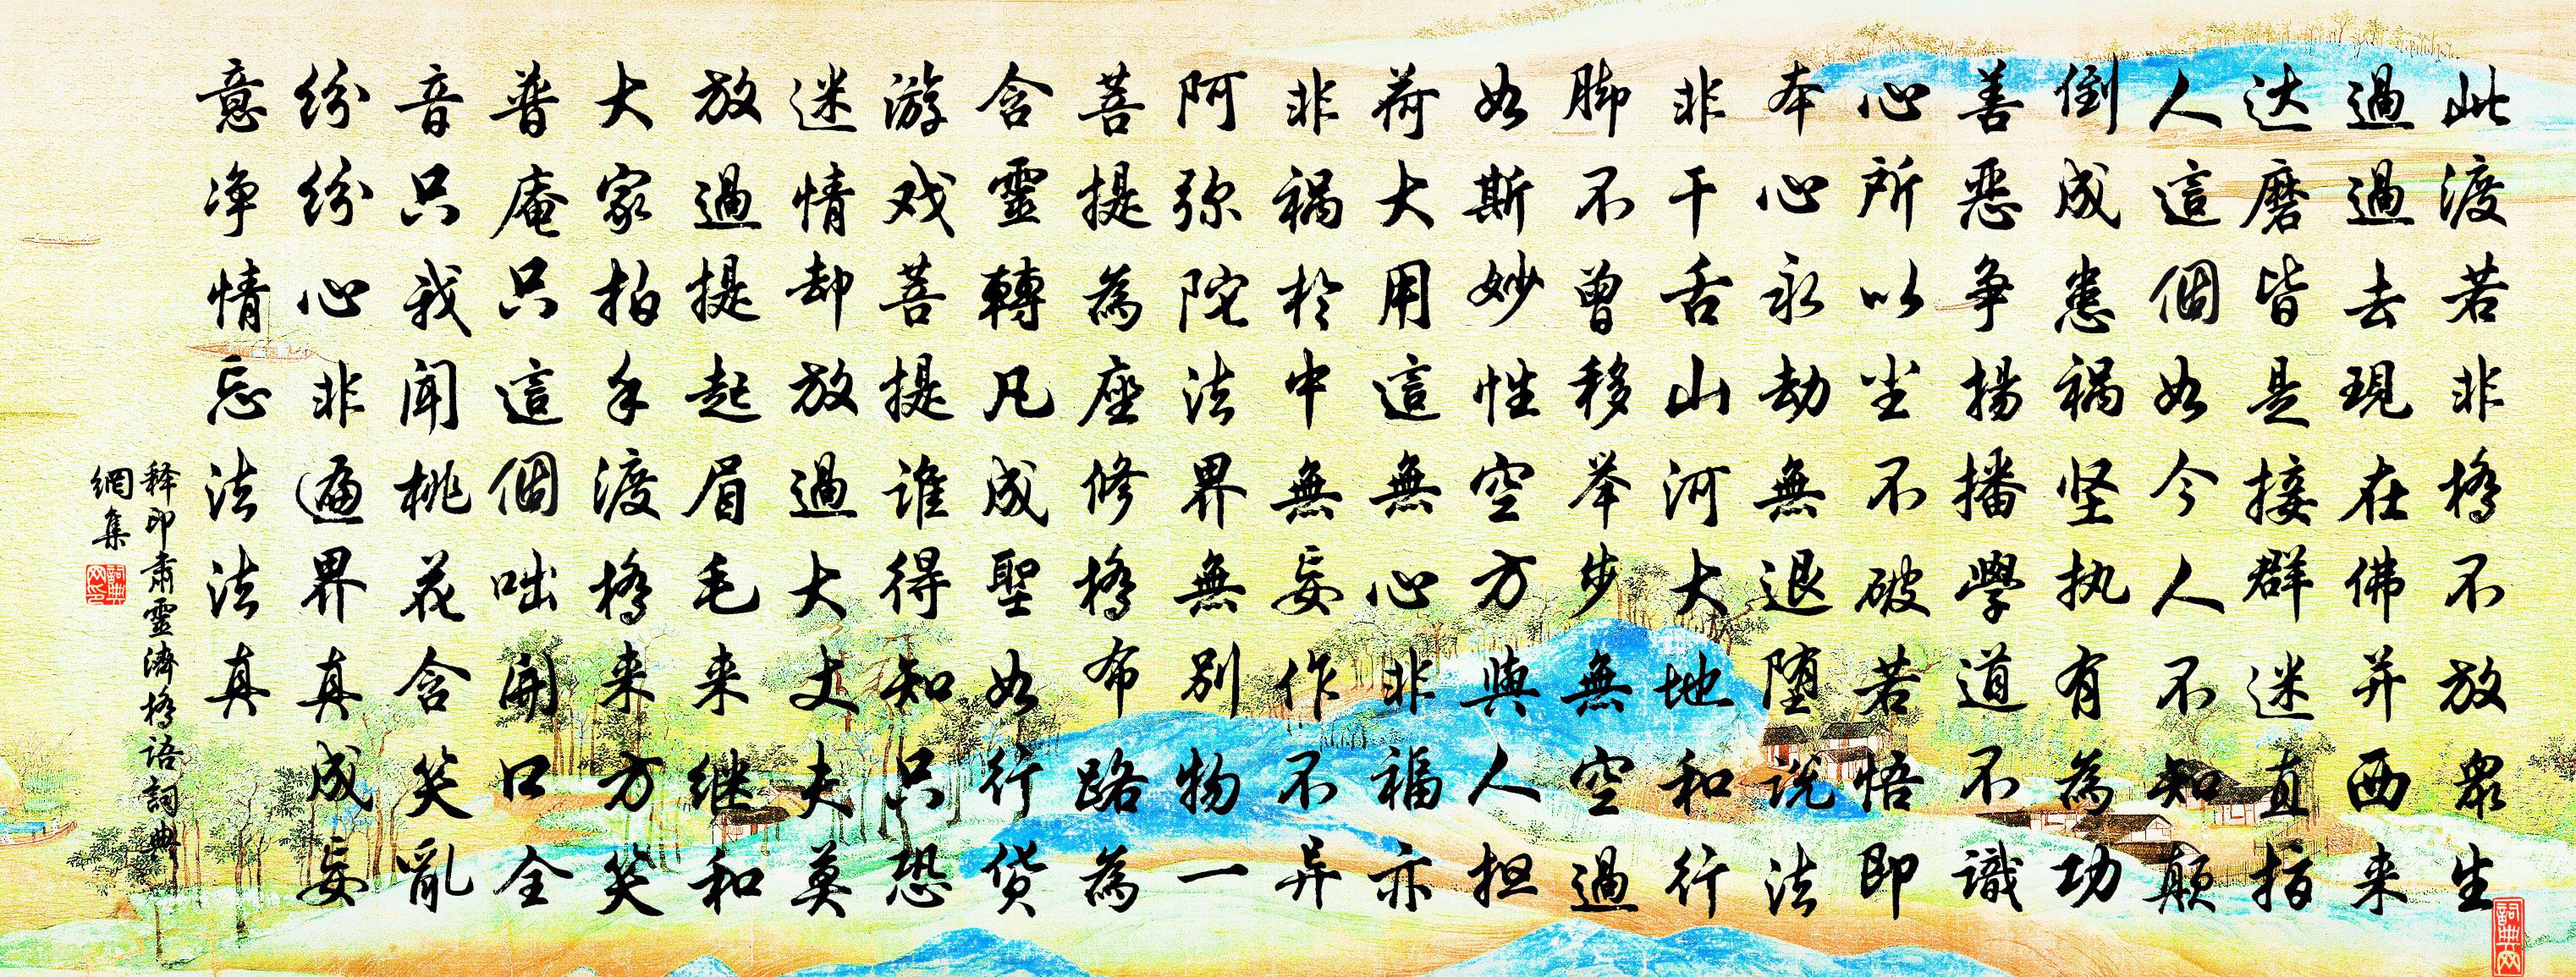 此渡若非橋不放衆生
過過去現在佛并西来
达磨皆是接群迷直指
人這個如今人不知颠
倒成惹祸坚执有為功
善惡争揚播學道不識
心所以坐不破若悟即
本心永劫無退堕说法
非干舌山河大地和行
脚不曾移举步無空過
如斯妙性空方與人担
荷大用這無心非福亦
非祸於中無妄作不异
阿弥陀法界無别物一
菩提為座修橋布路為
含靈轉凡成聖如行货
游戏菩提谁得知只恐
迷情却放過大丈夫莫
放過提起眉毛来继和
大家拍手渡橋来方笑
普庵只這個咄開口全
音只我闻桃花含笑亂
纷纷心非遍界真成妄
意净情忘法法真
释印肃靈濟橋語詞典
網集